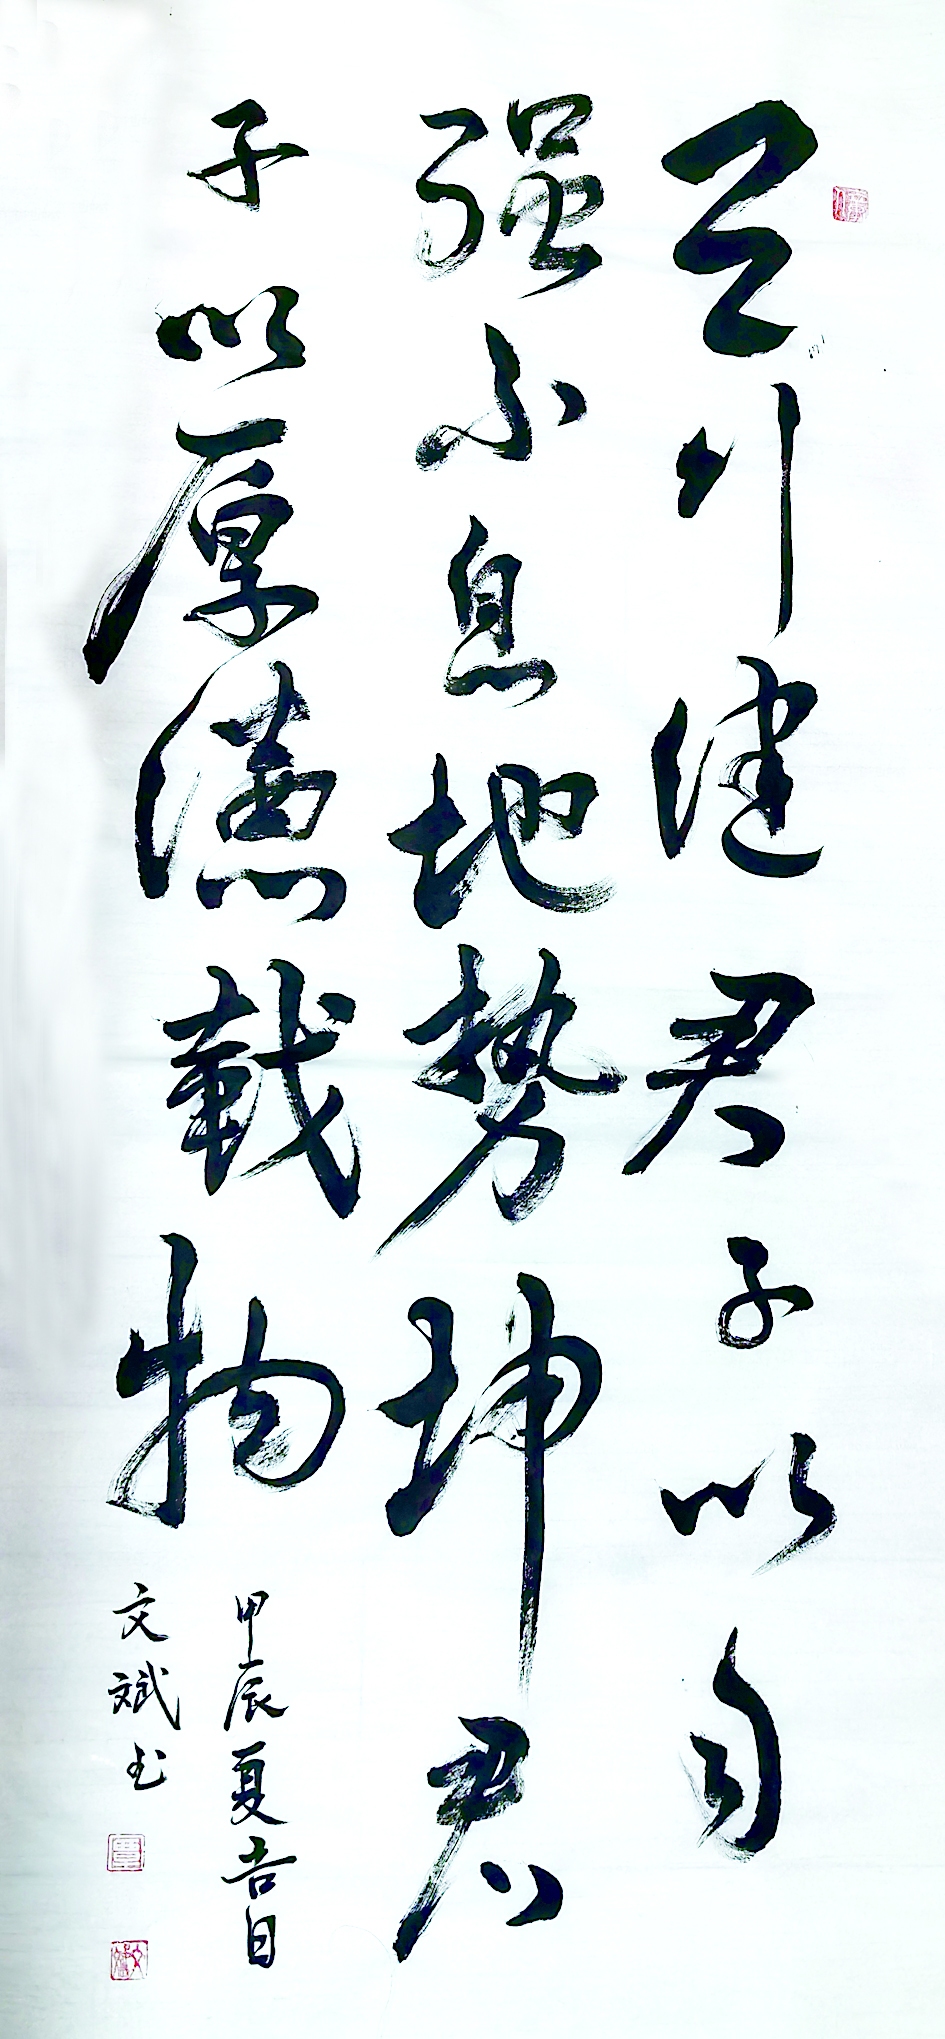 天行健君子以自
强不息地势坤君
子以厚德载物
甲辰夏吉日
文斌书